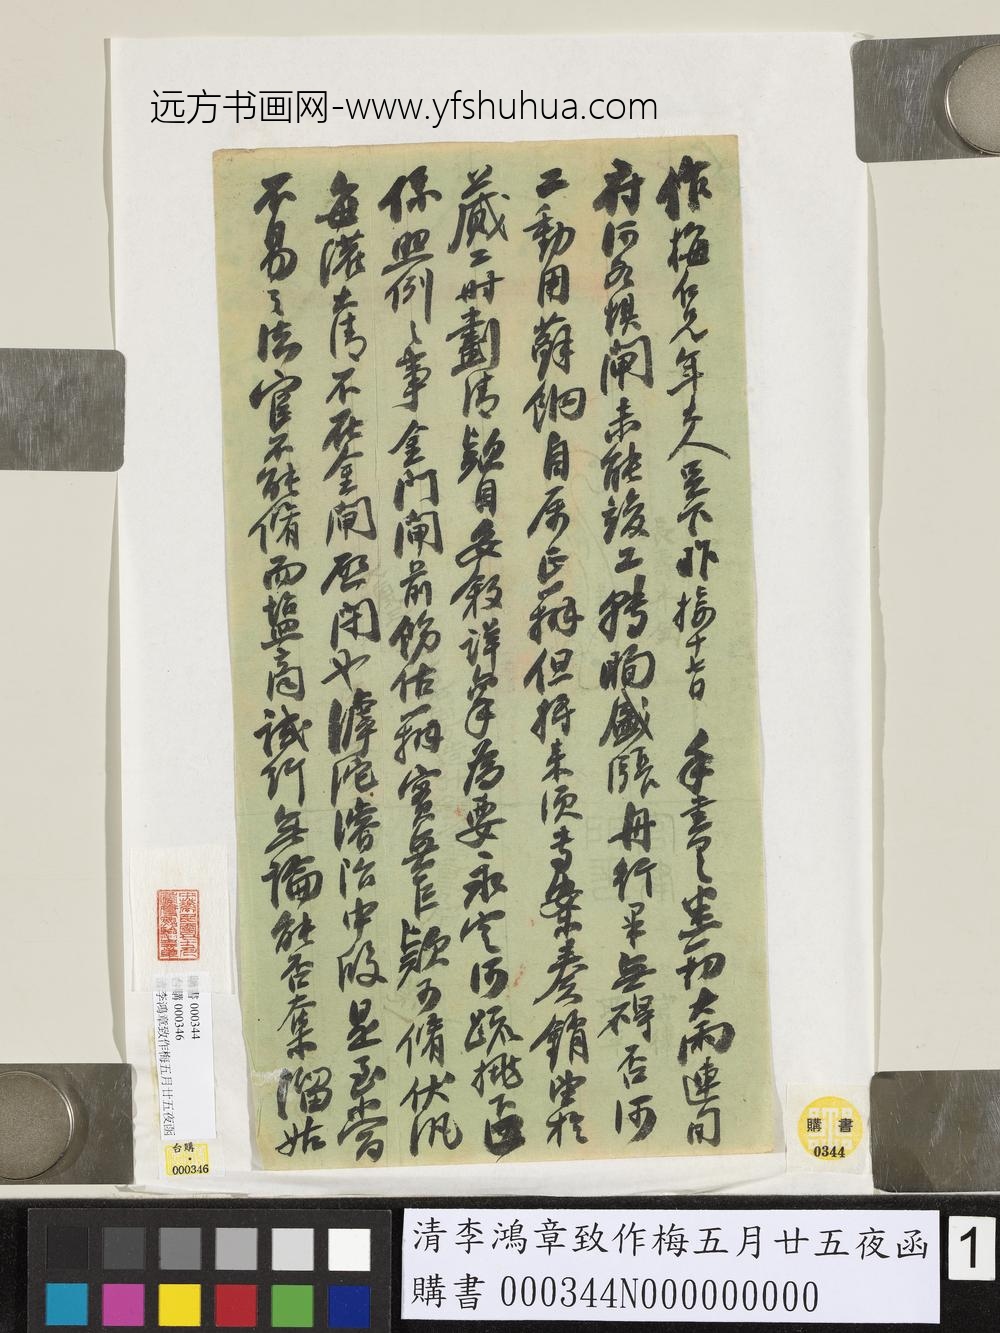 远方书画网-www.yfshuhua.com
作梅仁兄年大人足下昨接十七日手書具悉一切大雨連旬
府河及壩閘未能竣工轉瞬盛漲舟行果無碍否河
工動用蘇餉自应正辦但將來須專案奏銷望於
蕆工時劃清款目妥敘詳章為要永定河疏挑
係照例之事金門閘前飭估辦實無巨款可修伏汛
每灌清不在金閘啟閉也滹沱濬治中段是至當
不易之法官不能脩而鹽商試行無論能否奪溜姑
購書 000344
台購 000346
清李鴻章致作梅五月廿五夜函
台購
000346
購書
0344
清李鴻章致作梅五月廿五夜函
購書 000344N000000000
1